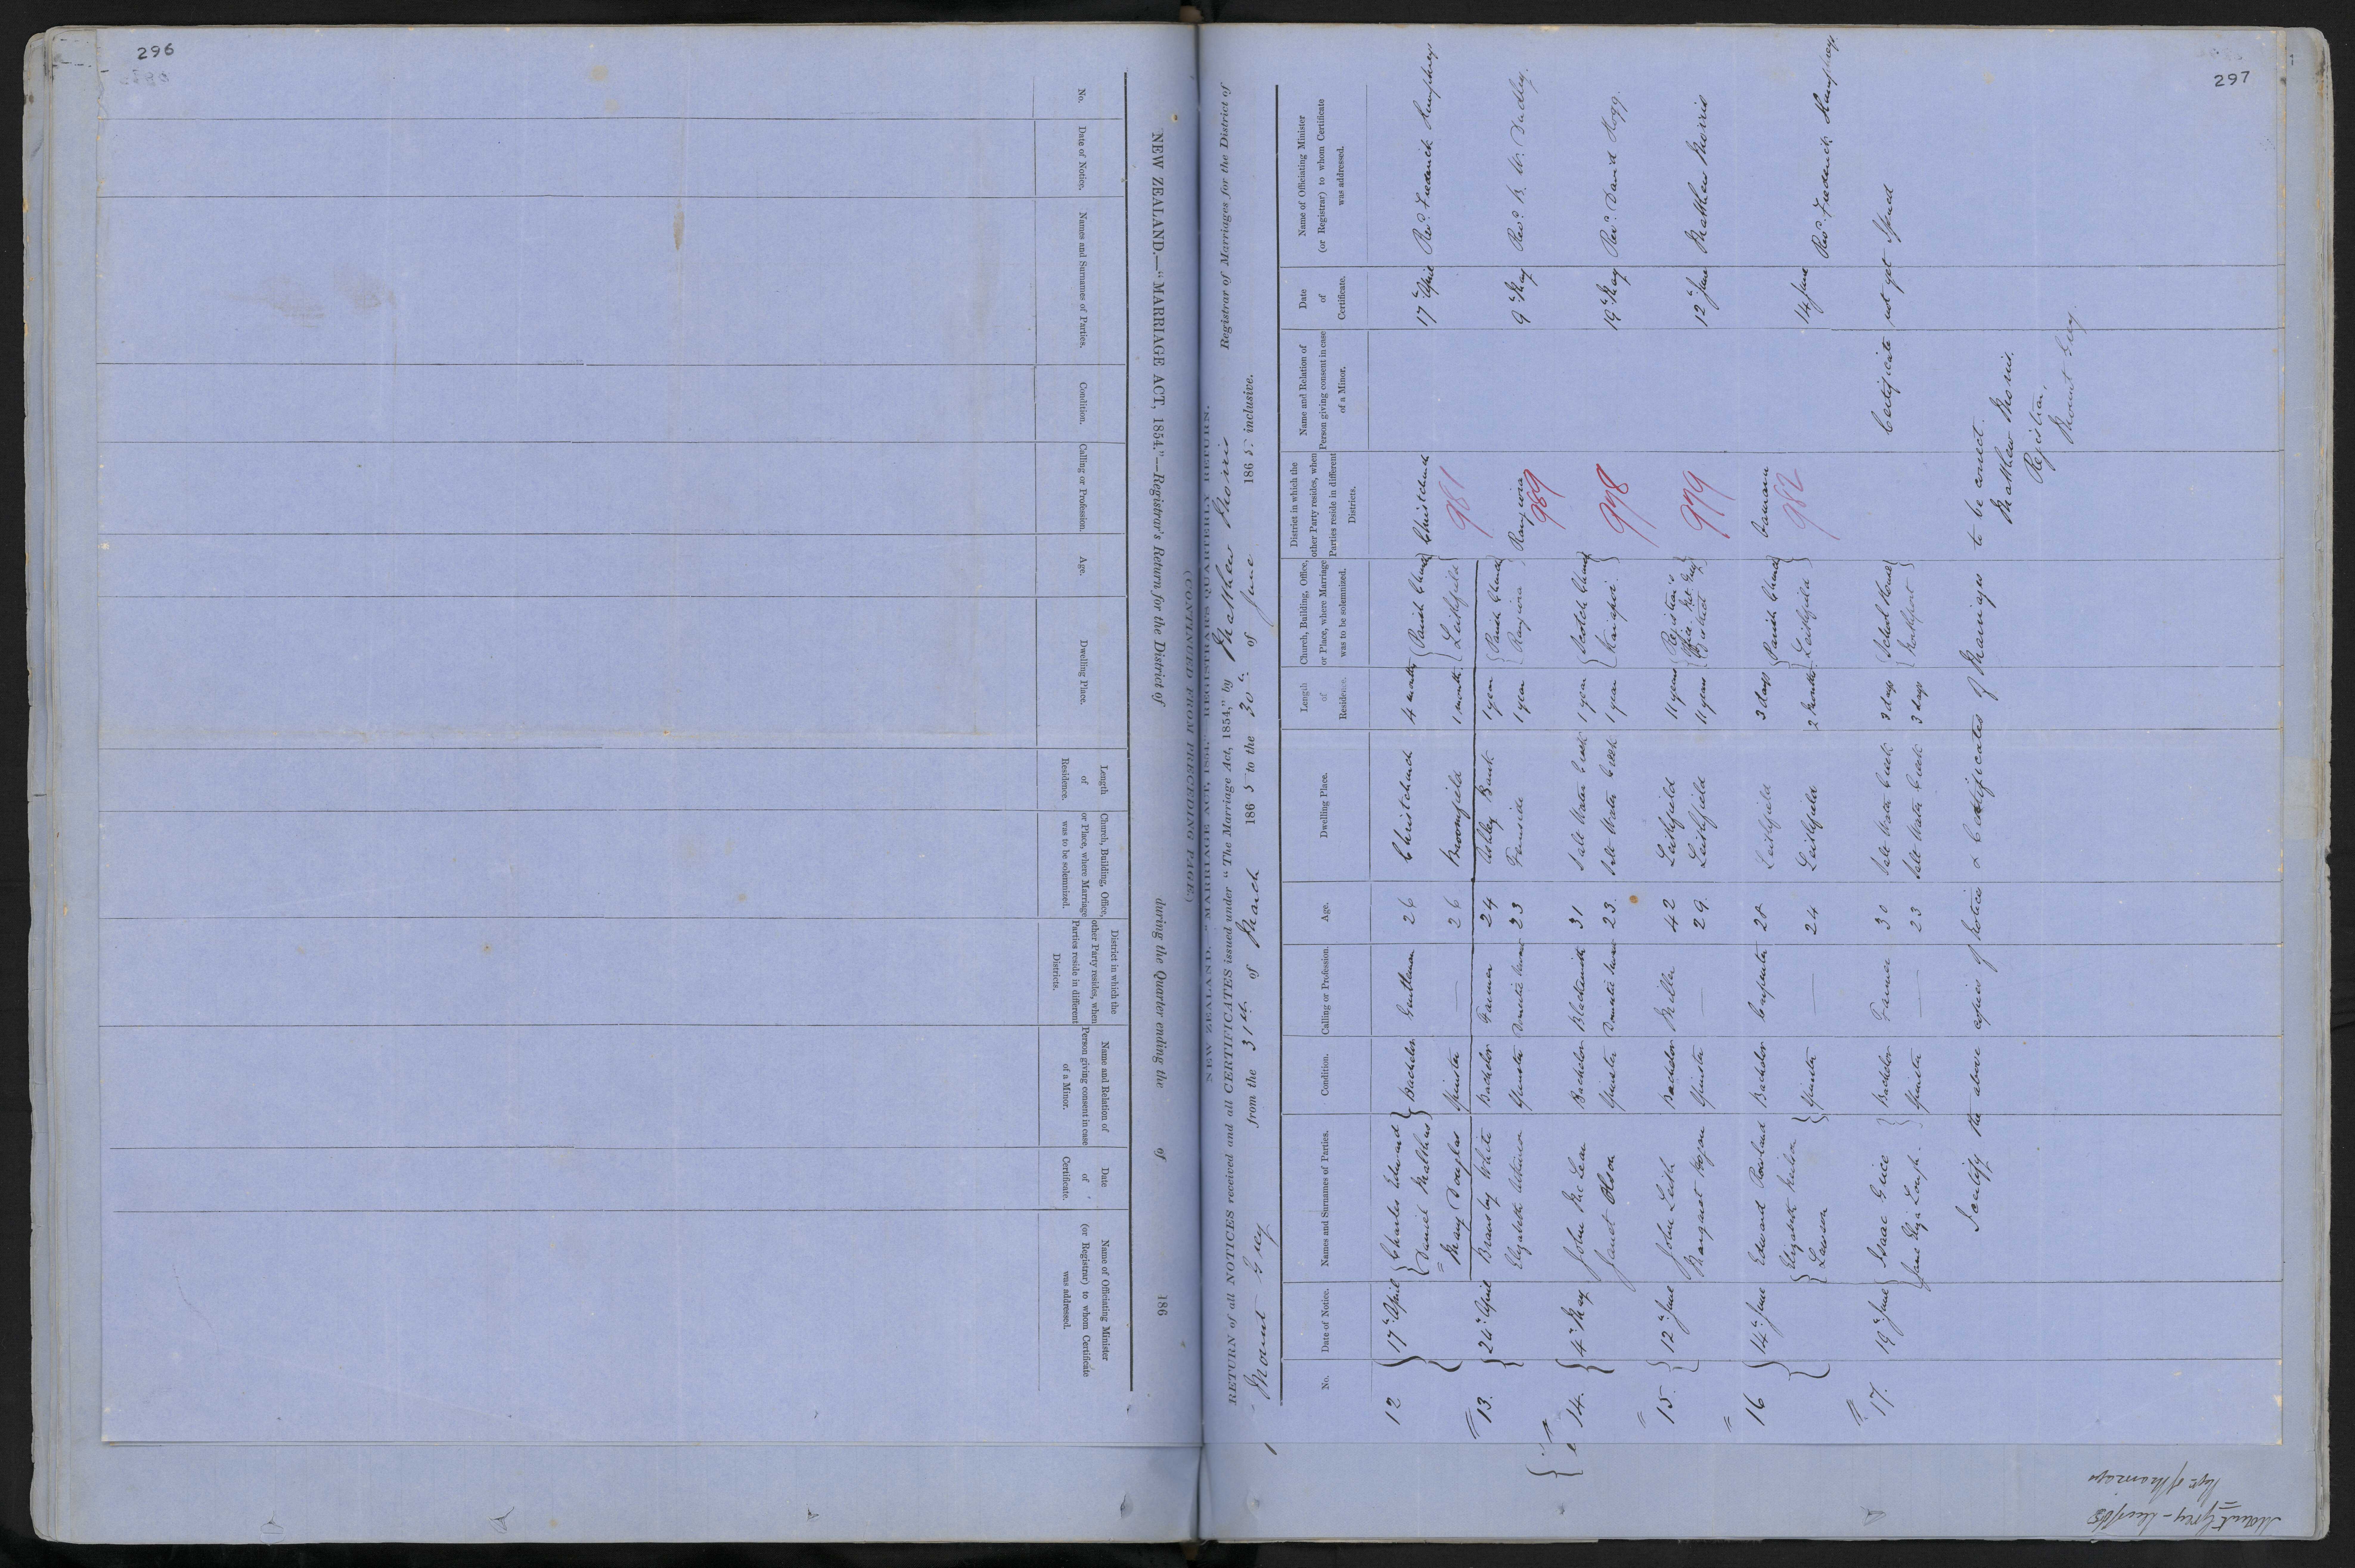 296
NEW ZEALAND.—"MARRIAGE ACT, 1854."—Registrar's Return for the District of during the Quarter ending the of 186
(CONTINUED FROM PRECEDING PAGE.)
No. Date of Notice. Names and Surnames of Parties. Condition. Calling or Profession. Age. Dwelling Place. Length of Residence. Church, Building, Office, or Place, where Marriage was to be solemnized. District in which the other Party resides, when Parties reside in different Districts. Name and Relation of Person giving consent in case of a Minor. Date of Certificate. Name of Officiating Minister (or Registrar) to whom Certificate was addressed.
297
NEW ZEALAND. "MARRIAGE ACT, 1854." REGISTRAR'S QUARTERLY RETURN.
RETURN of all NOTICES received and all CERTIFICATES issued under "The Marriage Act, 1854," by Matthew Morris Registrar of Marriages for the District of
Mount Grey from the 31st of March 1865 to the 30th of June 1865 inclusive.
No. Date of Notice. Names and Surnames of Parties. Condition. Calling or Profession. Age. Dwelling Place. Length of Residence. Church, Building, Office, or Place, where Marriage was to be solemnized. District in which the other Party resides, when Parties reside in different Districts. Name and Relation of Person giving consent in case of a Minor. Date of Certificate. Name of Officiating Minister (or Registrar) to whom Certificate was addressed.
12 17th April Charles Edmund Daniel Mathias Bachelor Gentleman 26 Christchurch 4 months Parish Church Christchurch 17th April Revd. Frederick Humphrey
Mary Douglas Spinster — 26 Broomfield 1 month Leithfield 981
13. 24th April Bransby White Bachelor Farmer 24 Ashley Bank 1 year Parish Church
Elizabeth Atkinson Spinster Domestic Servant 23 Fernside 1 year Rangiora Rangiora 9th May Revd. B. W. Dudley.
989
14. 4th May John McLean Bachelor Blacksmith 31 Salt Water Creek 1 year Scotch Church
Janet Olson Spinster Domestic Servant 23. Salt Water Creek 1 year Kaiapoi. 978 19th May Revd. David Hogg.
15. 12th June John Leith Bachelor Miller 42 Leithfield 11 years Registrar's
Margaret Hogan Spinster — 29. Leithfield 11 years Office Mt Grey District 979 12th June Matthew Morris
16 14th June Edward Rowland Bachelor Carpenter 28 Leithfield 3 days Parish Church Oamaru
Elizabeth Nelson Lawson Spinster — 24 Leithfield 2 months Leithfield 982 14 June Revd. Frederick Humphreys.
17. 19th June Isaac Grice Bachelor Farmer 30 Salt Water Creek 3 days School House Certificate not yet Issued
Jane Spinster — 23 Salt Water Creek 3 days Northport
I certify the above copies of Notices & Certificates of Marriages to be correct.
Matthew Morris.
Registrar.
Mount Grey
Mount Grey - June/65
of Marriages